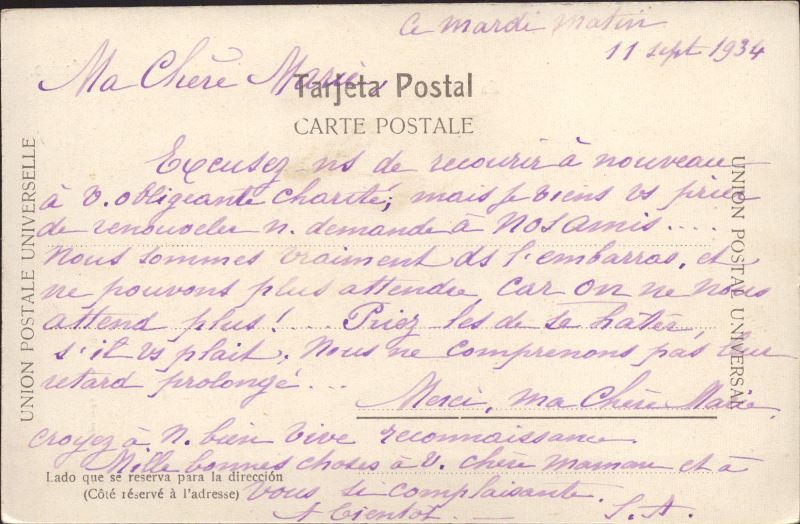 Ce mardi matin
11 sept 1934
Ma Chère Marie,
Tarjeta Postal
CARTE POSTALE
UNION POSTALE UNIVERSELLE
UNION POSTAL UNIVERSAL
Excusez ns de recourir à nouveau
à v. obligeante charité, mais je viens vs prier
de renouveler n. demande à nos amis....
Nous sommes vraiment ds l'embarras, et
ne pouvons plus attendre, car on ne nous
attend plus!... Priez les de se hâter,
s'il vs plait. Nous ne comprenons pas leur
retard prolongé...
Merci, ma Chère Marie,
croyez à N. bien vive reconnaissance.
Mille bonnes choses à V. chère maman et à
Lado que se reserva para la dirección
(Côté réservé à l'adresse)
vous si complaisante.
A bientot. — S.A.